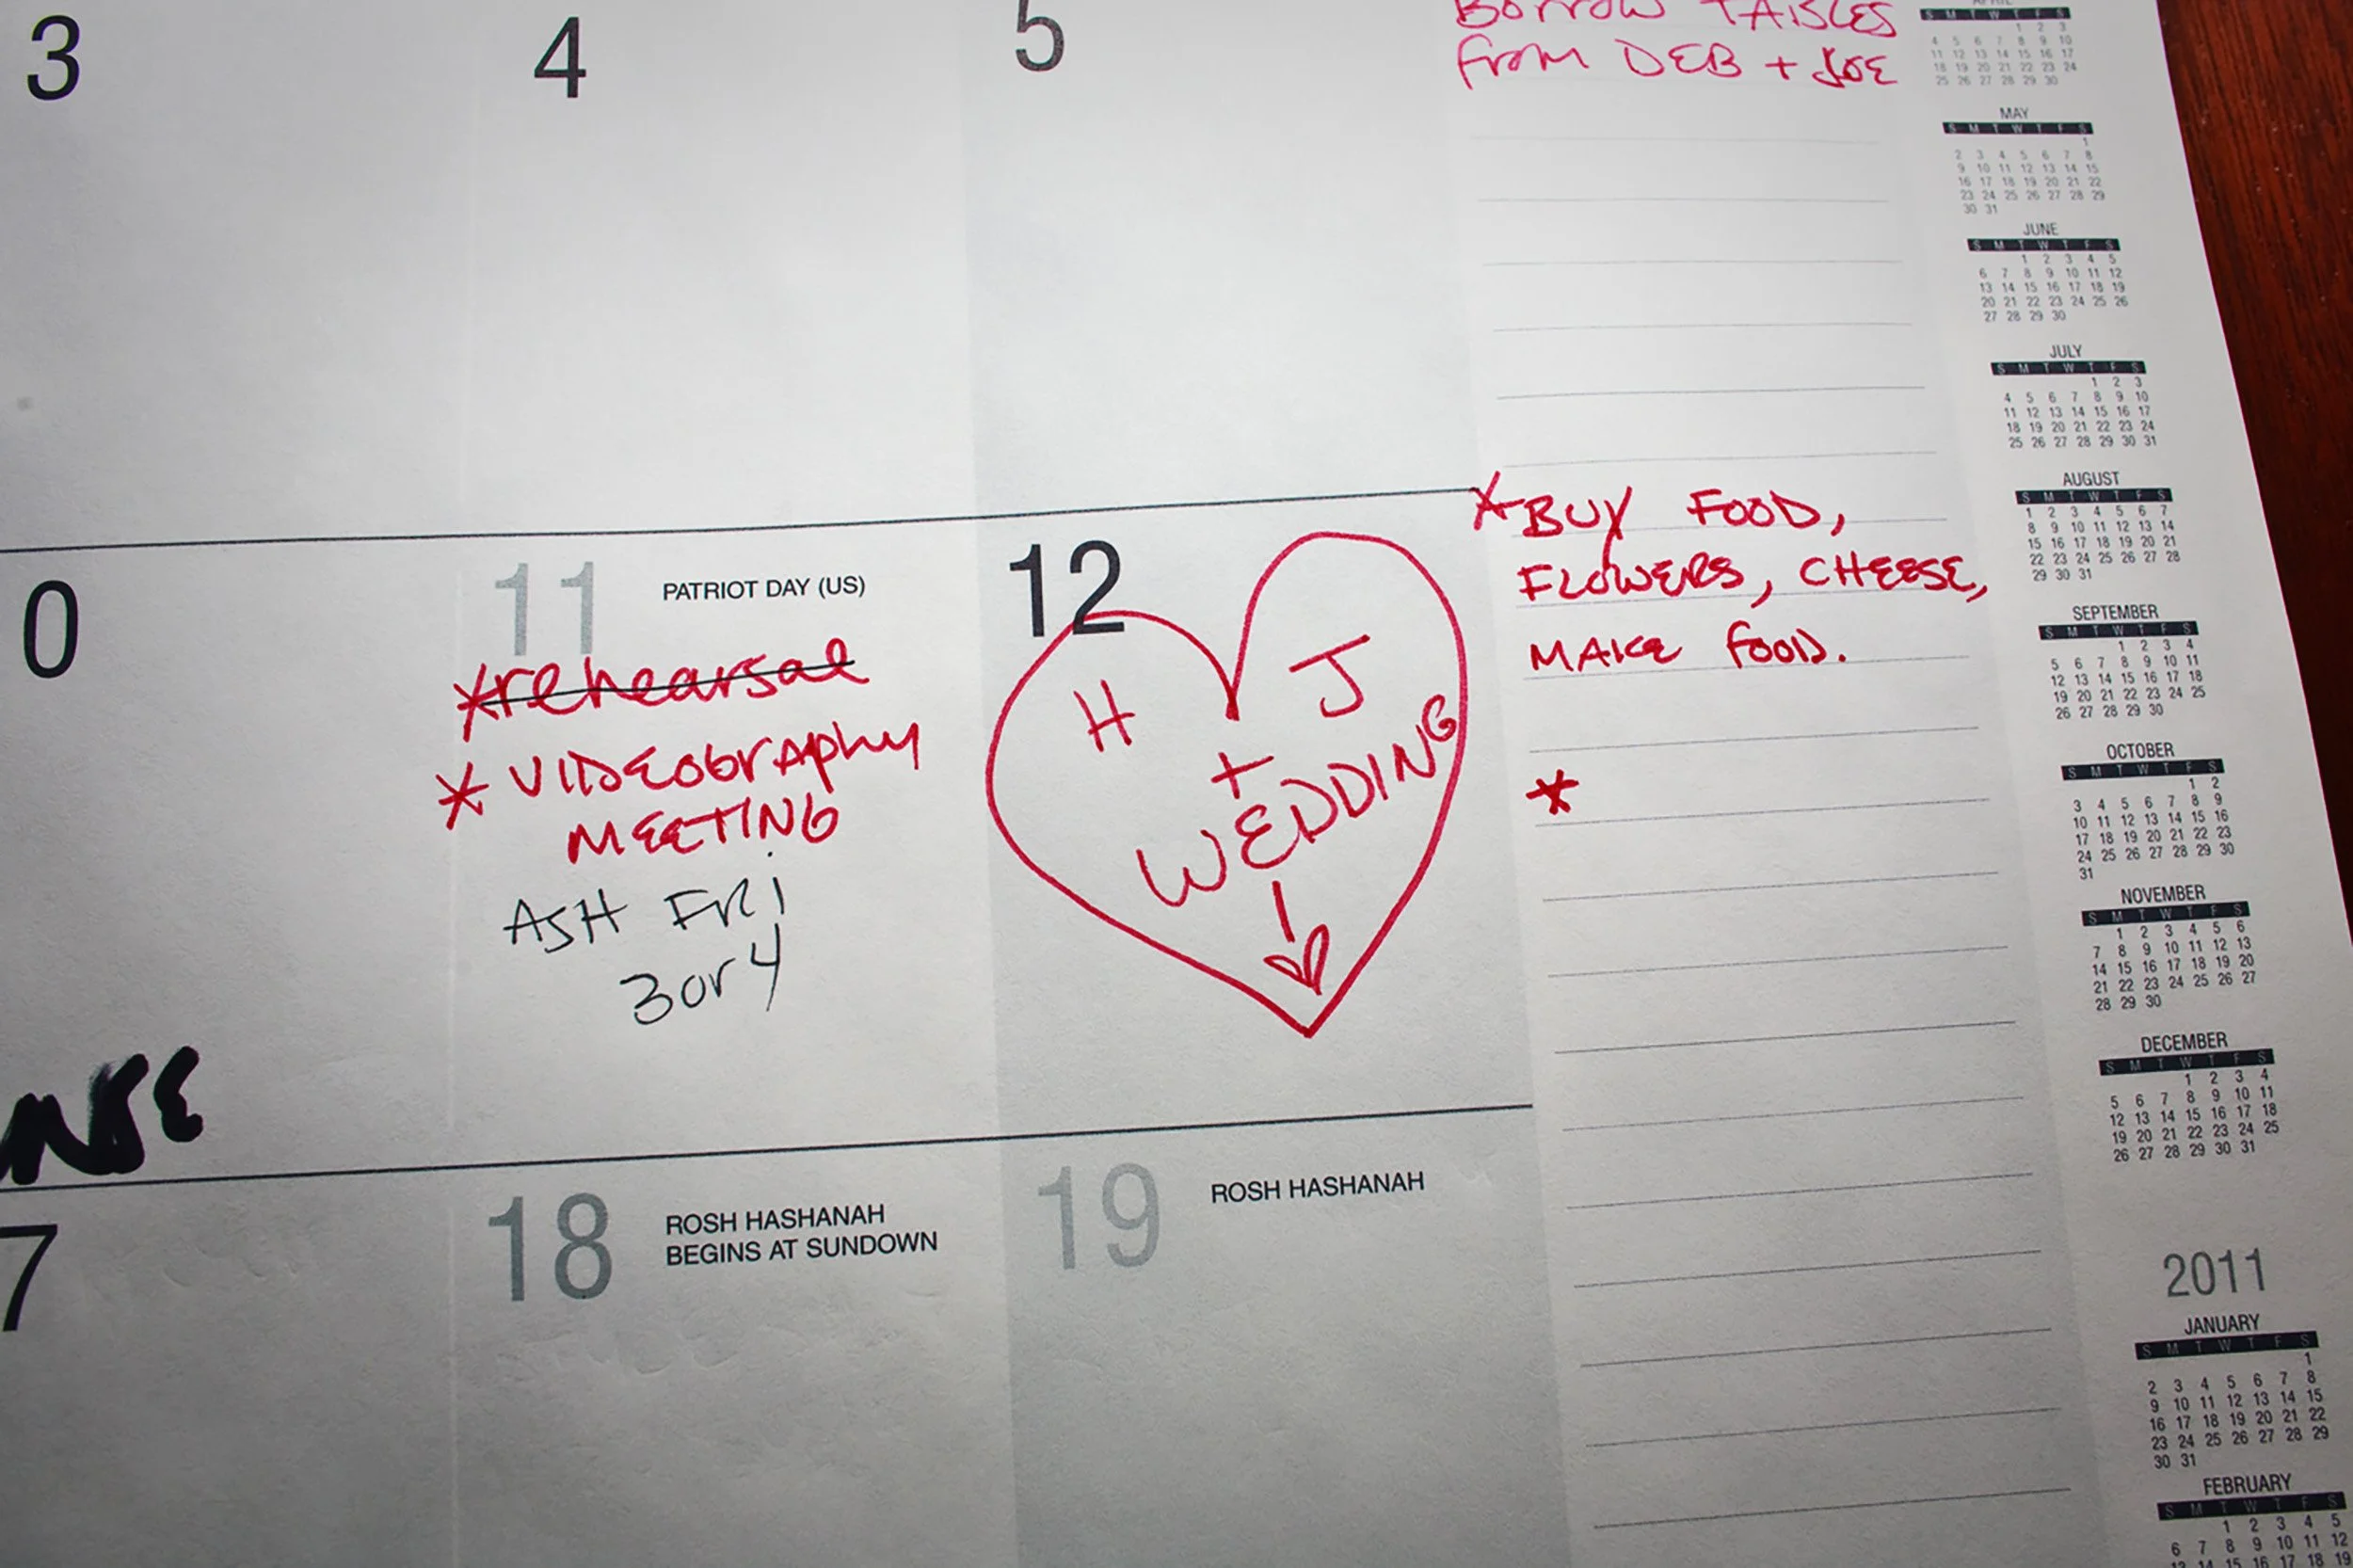 3
4
5
Borrow TABLES
From DEB + JOE
0
11 PATRIOT DAY (US)
*rehearsal
* VIDEOGRAPHY
MEETING
ASH FRI
3 or 4
12
H J
+
WEDDING
*BUY FOOD,
FLOWERS, CHEESE,
MAKE FOOD.
*
NSE
7
18 ROSH HASHANAH
BEGINS AT SUNDOWN
19 ROSH HASHANAH
S M T W T F S
1 2 3
4 5 6 7 8 9 10
11 12 13 14 15 16 17
18 19 20 21 22 23 24
25 26 27 28 29 30
MAY
S M T W T F S
1
2 3 4 5 6 7 8
9 10 11 12 13 14 15
16 17 18 19 20 21 22
23 24 25 26 27 28 29
30 31
JUNE
S M T W T F S
1 2 3 4 5
6 7 8 9 10 11 12
13 14 15 16 17 18 19
20 21 22 23 24 25 26
27 28 29 30
JULY
S M T W T F S
1 2 3
4 5 6 7 8 9 10
11 12 13 14 15 16 17
18 19 20 21 22 23 24
25 26 27 28 29 30 31
AUGUST
S M T W T F S
1 2 3 4 5 6 7
8 9 10 11 12 13 14
15 16 17 18 19 20 21
22 23 24 25 26 27 28
29 30 31
SEPTEMBER
S M T W T F S
1 2 3 4
5 6 7 8 9 10 11
12 13 14 15 16 17 18
19 20 21 22 23 24 25
26 27 28 29 30
OCTOBER
S M T W T F S
1 2
3 4 5 6 7 8 9
10 11 12 13 14 15 16
17 18 19 20 21 22 23
24 25 26 27 28 29 30
31
NOVEMBER
S M T W T F S
1 2 3 4 5 6
7 8 9 10 11 12 13
14 15 16 17 18 19 20
21 22 23 24 25 26 27
28 29 30
DECEMBER
S M T W T F S
1 2 3 4
5 6 7 8 9 10 11
12 13 14 15 16 17 18
19 20 21 22 23 24 25
26 27 28 29 30 31
2011
JANUARY
S M T W T F S
1
2 3 4 5 6 7 8
9 10 11 12 13 14 15
16 17 18 19 20 21 22
23 24 25 26 27 28 29
30 31
FEBRUARY
S M T W T F S
1 2 3 4 5
6 7 8 9 10 11 12